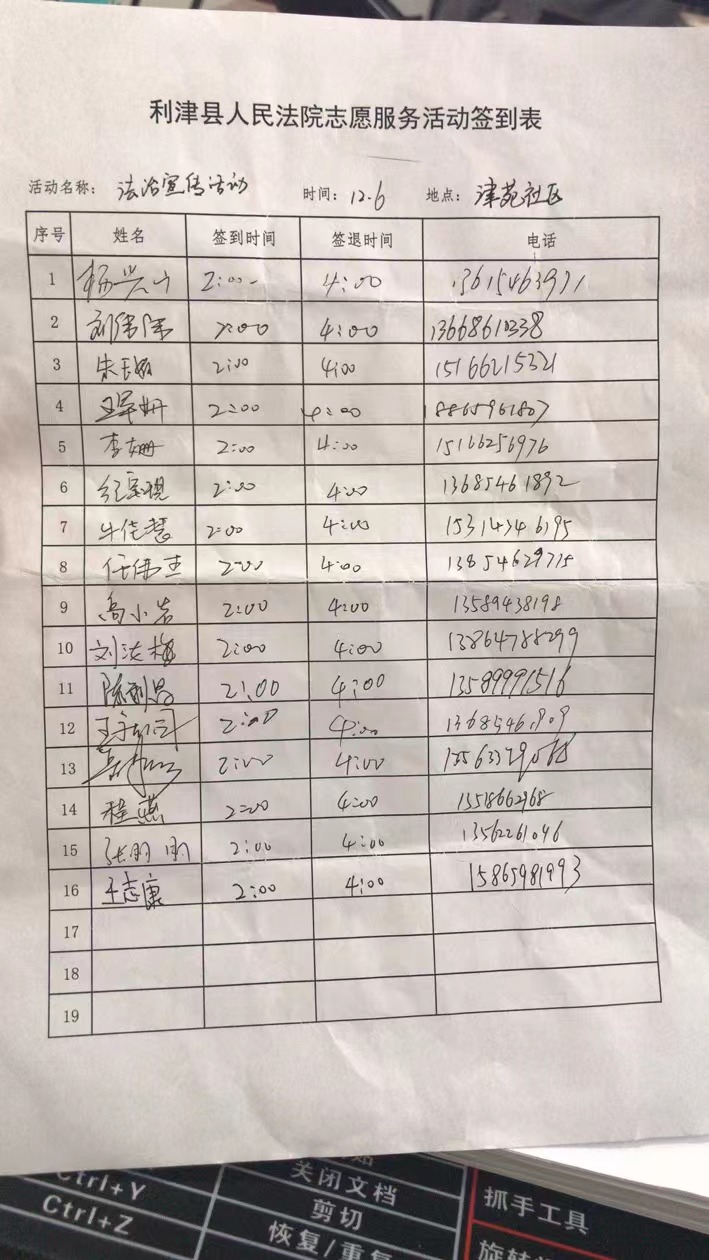 利津县人民法院志愿服务活动签到表
活动名称: 法治宣传活动 时间: 12.6 地点: 津苑社区
序号 姓名 签到时间 签退时间 电话
1 2:00 4:00 13615463971
2 刘伟伟 2:00 4:00 13668610338
3 朱玉敏 2:00 4:00 15166215321
4 王翠珊 2:00 4:00 18865961807
5 李姗 2:00 4:00 15166256976
6 纪宝琨 2:00 4:00 13685461892
7 牛佳慧 2:00 4:00 15314346195
8 任伟杰 2:00 4:00 13854629715
9 高小岩 2:00 4:00 13589438198
10 刘洪梅 2:00 4:00 13864788299
11 陈利昌 2:00 4:00 13589991516
12 2:00 4:00
13 2:00 4:00
14 程燕 2:00 4:00
15 张明明 2:00 4:00 13562261046
16 王志康 2:00 4:00 15865981993
17
18
19
Ctrl+Y 关闭文档 抓手工具
Ctrl+Z 剪切
恢复/重复